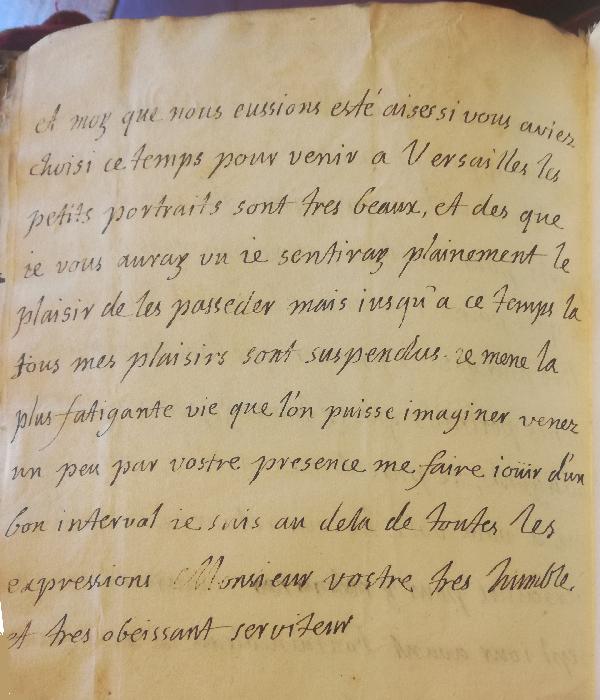 et moy que nous eussions esté aises si vous aviez
choisi ce temps pour venir a Versailles les
petits portraits sont tres beaux, et des que
ie vous auray vu ie sentiray plainement le
plaisir de les posseder mais iusqu'a ce temps la
tous mes plaisirs sont suspendus. ie mene la
plus fatigante vie que l'on puisse imaginer venez
un peu par vostre presence me faire iouir d'un
bon interval ie suis au dela de toutes les
expressions Monsieur vostre tres humble.
et tres obeissant serviteur